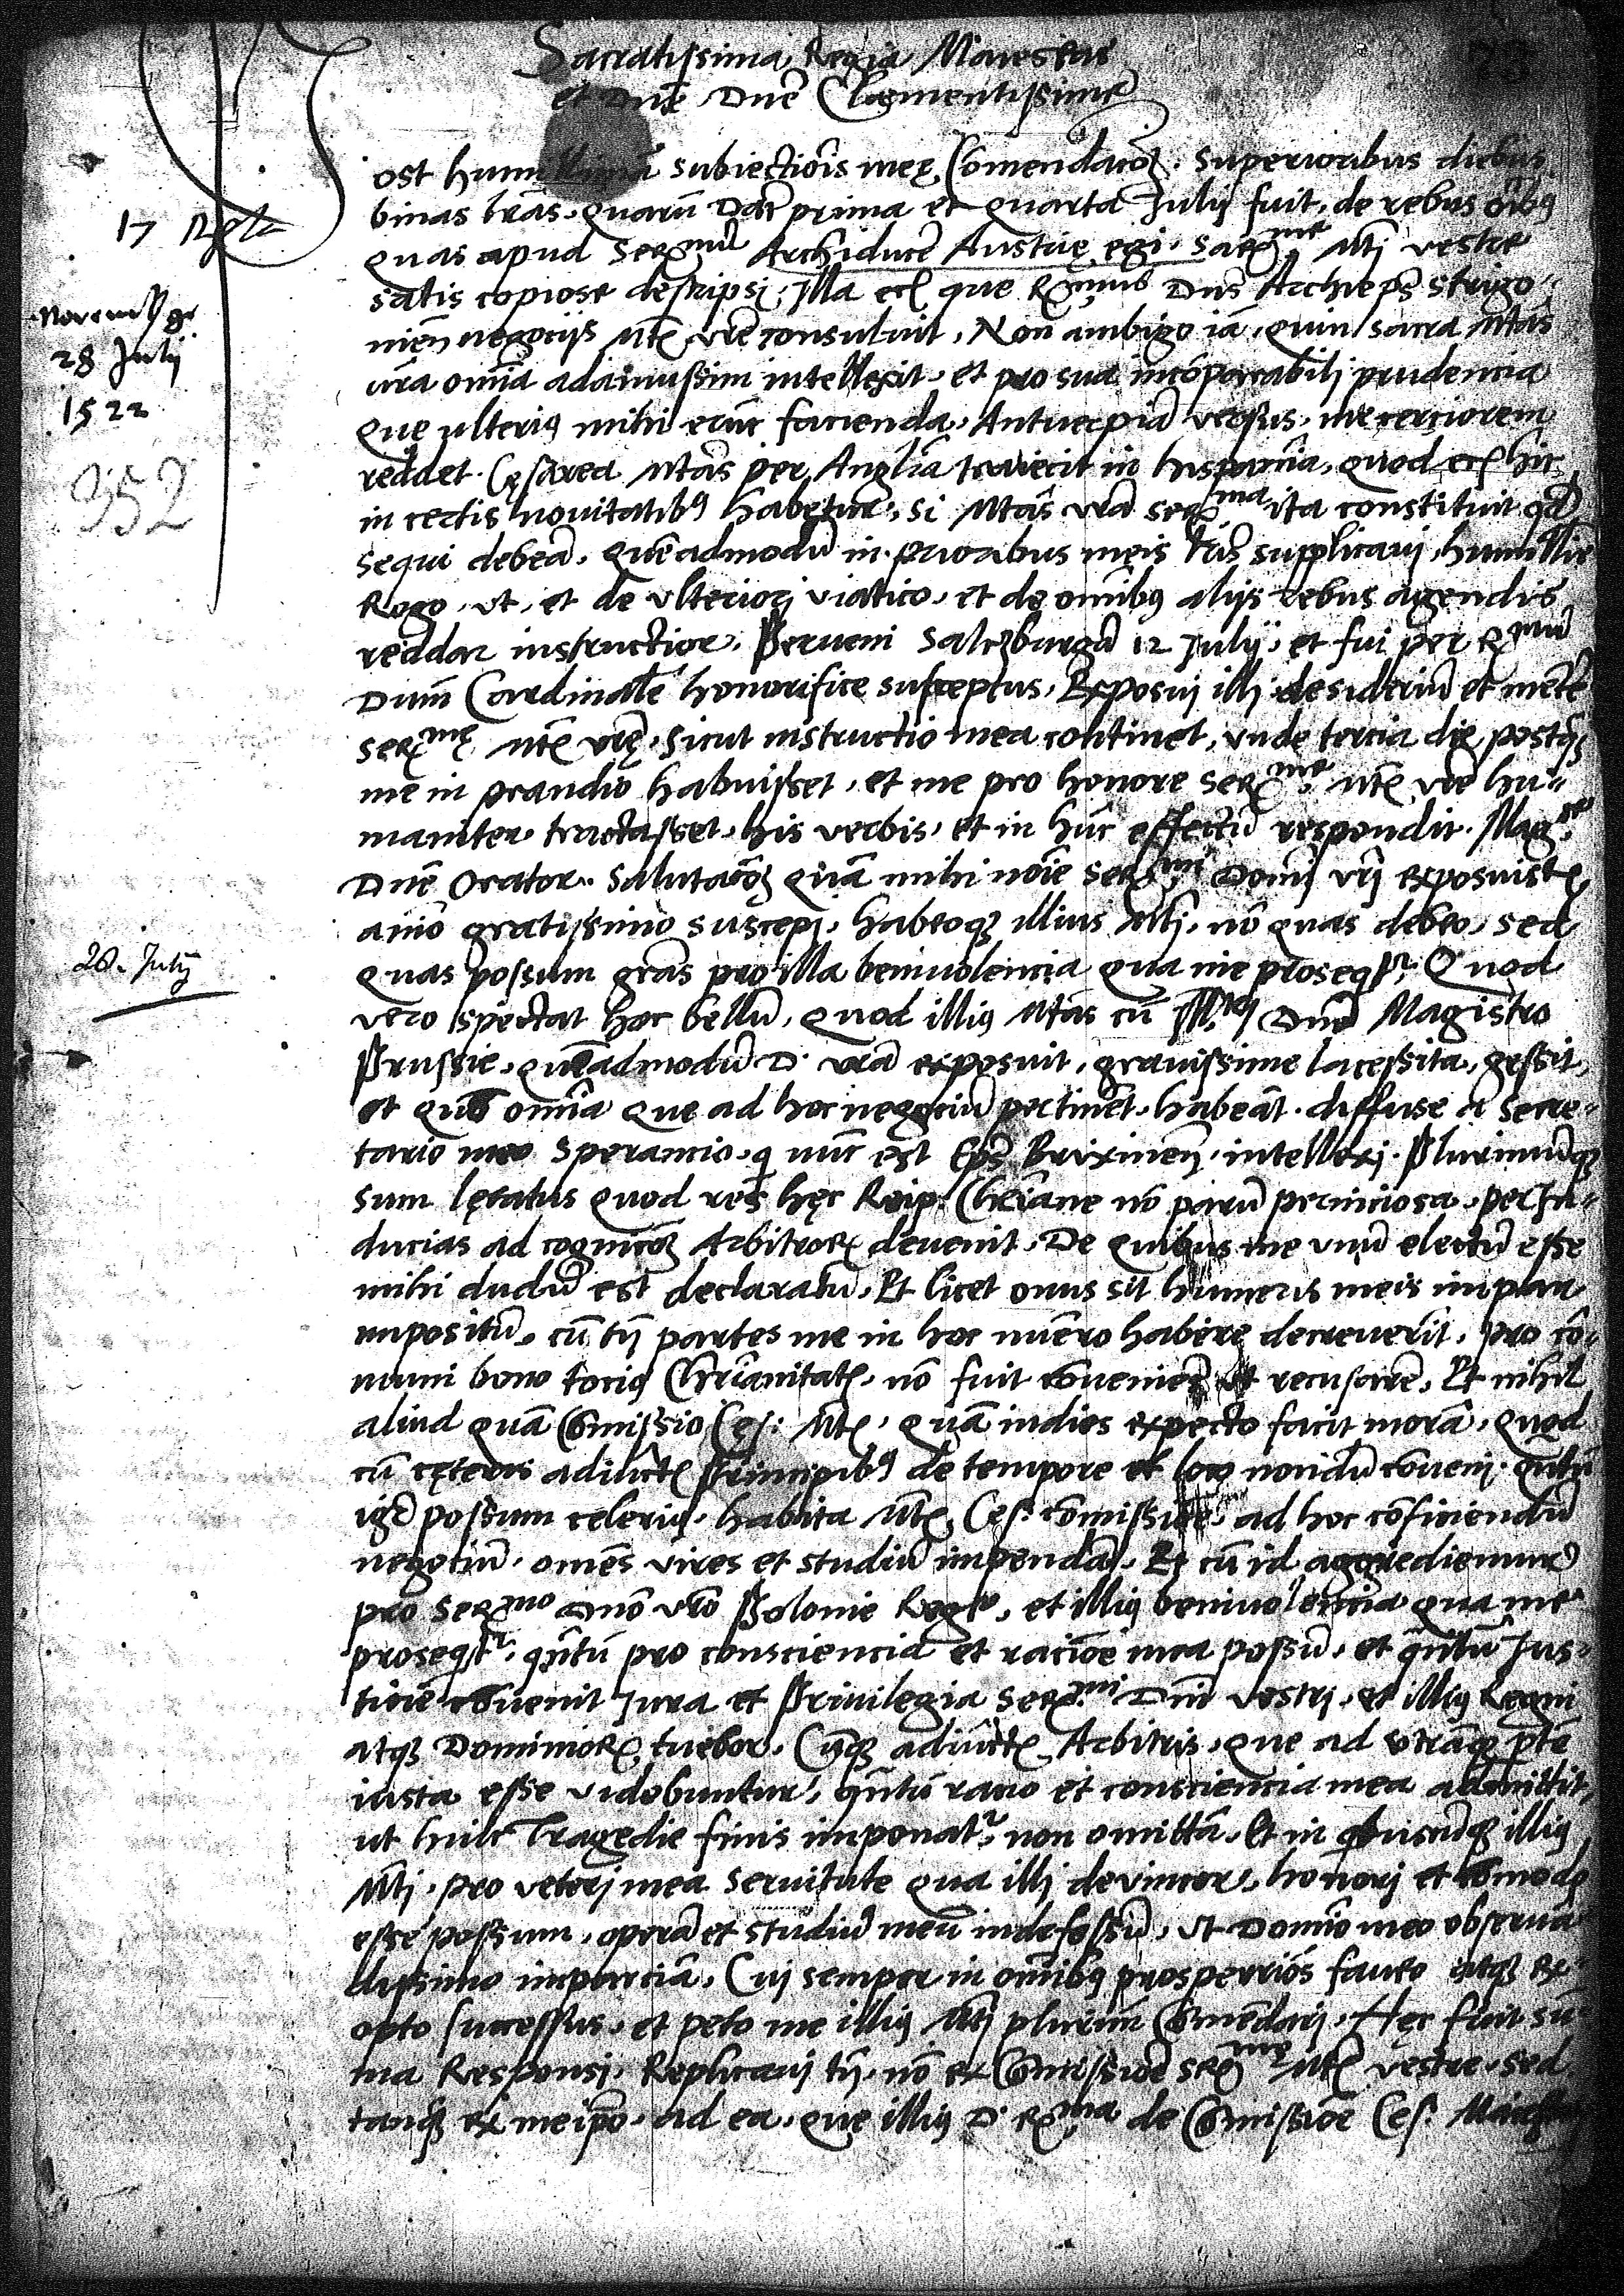 Sacratissima Regia Maiestas
et Dnē Dnē Clementissime
Post humillimā subiectiōis meę Comendacōȝ. Superioribus diebus
binas lrās, quarū Dat prima et quarta Julij fuit, de rebus oībꝰ
17
quas apud Serᵐᵘᵐ Archiducē Austrię egi, Sacrᵐᵉ Mti vestre
satis copiose descripsi, Illa etc que Rᵐᵘˢ Dns Archiepūs Strigo-
Nurembge
28 Julij
1522
nieñ negocijs Mtis vre consuluit, Non ambigo iā, quin sacra Mtas
vra omīa adamussim intellexit, et pro sua incōparabili prudencia
Que ulteriꝰ mihi erūt facienda, Antuerpiā versus, me cerciorem
352
reddet. Cęsarea Mtas per Angliā traiecit in hispaniā, quod etc hic
in certis novitatibꝰ habetur, si Mtas vrā serᵐᵃ ita constituit qđ
sequi debeā, quēadmodū in prioribus meis lris supplicavi, humillīe
Rogo, ut, et de ulteriori viatico, et de omībꝰ alijs rebus agendis
reddar instructior. Perueni Salczburgā 12 Julij, et fui per Rᵐᵘᵐ
Dnm Cardinalē honorifice susceptus, Exposui illi desideriū et mētē
serᵐę Mtis vrę, sicut instructio mea continet, unde tercia die postq̄
me in prandio habuisset, et me pro honore serᵐᵉ Mtis vre hu-
maniter tractasset, his verbis, et in hūc effectū respondit. Magᶜᵉ
Dnē Orator. Salutacōȝ quā mihi noīe serᵐⁱ Domi vri exposuistis
aīo gratissimo suscepi, habeoqȝ illius Mti, nō quas debeo, sed
20. July
quas possum grās pro illa beniuolencia qua me proseqtʳ. Quod
vero spectat hoc bellū, quod illiꝰ Mtas cū Illᵐᵒ Dnō Magistro
Prussie, quēadmodū D. vrā exposuit, gravissime lacessita, gessit,
et quō omīa que ad hoc negociū pertinēt, habeāt, diffuse a Secre-
tario meo Sperancio, q nūc est Epūs Brixineñ, intellexi. Plurimūqȝ
sum lętatus quod res hęc Reip. Chriane nō parū perniciosa, per In-
ducias ad cognicōȝ Arbitrorȝ deuenit, De quibus me unū electū esse
mihi dudū est declaratū, Et licet onus sit humeris meis impar
impositū, cū tn̄ partes me in hoc nūero habere decreuerīt, pro cō-
muni bono tociꝰ Chrianitatis, nō fuit cōueniēs ut recusarē, Et nihil
aliud quā Cōmissio Ces. Mtis, quā indies expecto facit morā, quod
cū cęteris adiūctis Principibꝰ de tempore et loco nondū cōueni. Qntū
igr possum celeriꝰ, habita Mtis Ces. cōmissiōe, ad hoc cōficiendū
negotiū, omēs vires et studiū impendā, Et cū id aggrediemur
pro serᵐᵒ dnō vrō Polonie Rege, et illiꝰ beniuolencia qua me
proseqtʳ, qntū pro consciencia et raciōe mea possū, et qntū Jus-
ticiē cōuenit Jura et Privilegia serᵐⁱ Dni vestri, et illiꝰ Regni
atqȝ Dominiorȝ, tuebor, Cūqȝ adiūctis Arbitris, que ad utrāqȝ ptē
iusta esse videbuntur, qntū racio et consciencia mea admittit,
ut huic Tragedie finis imponatʳ, non omittā, Et in quibuscūqȝ illiꝰ
Mti, pro veteri mea servitute qua illi devincor, honori et cōmodo
esse possum, operā et studiū meū indefessū, ut Domīo meo observā-
dissimo impartiā, Cui semper in omībꝰ prosperriōs faueo atqȝ ex-
opto successus, et peto me illiꝰ Mti plurimū Cōmēdari, Hęc fuit sū-
ma Responsi, Replicavi tn̄, nō ex Cōmissiōe serᵐę Mtis vestre, sed
tanqȝ ex meipō, ad ea, que illiꝰ D. Rᵐᵃ de Cōmissiōe Ces. Maiest